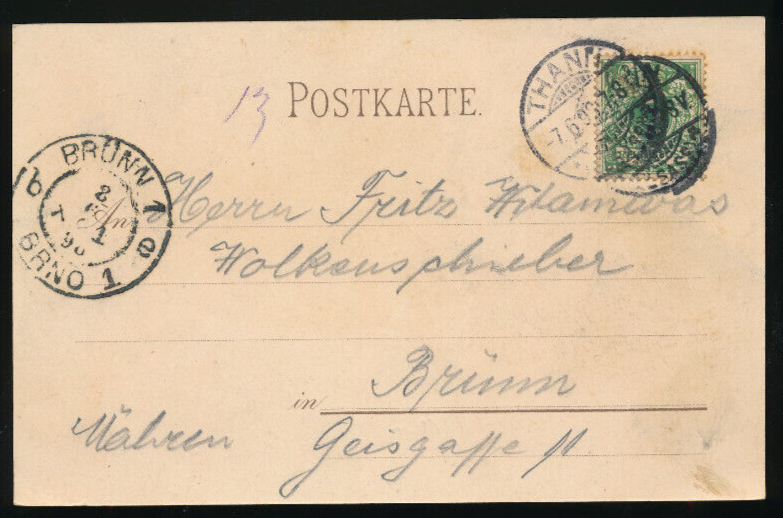 13
POSTKARTE.
THANN
-7.6.98
BRÜNN 1
b
e
BRNO 1
An
Herrn Fritz
Wolkenschieber
in Brünn
Mähren Geisgasse 11.